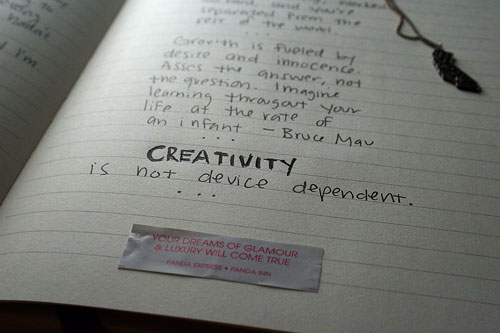 separated from the
rest of the world.
...
Growth is fueled by
desire and innocence.
Asses the answer, not
the question. Imagine
learning througout your
life at the rate of
an infant - Bruce Mau
...
CREATIVITY
is not device dependent.
...
YOUR DREAMS OF GLAMOUR
& LUXURY WILL COME TRUE
PANDA EXPRESS • PANDA INN
I'm